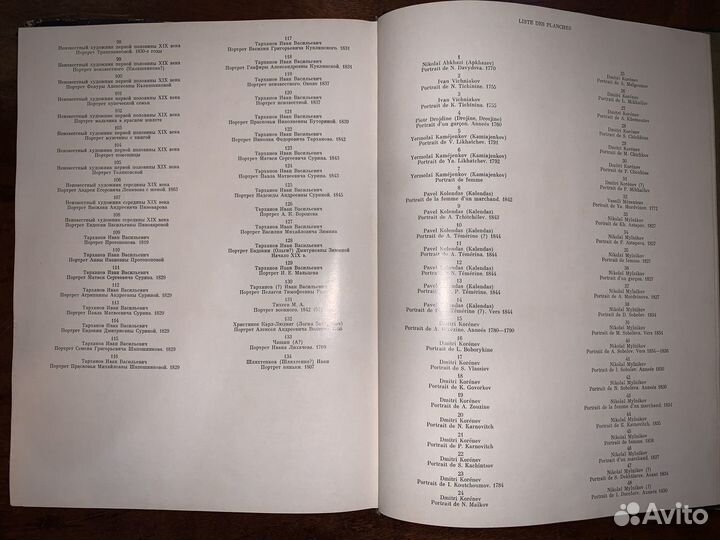 98
Неизвестный художник первой половины XIX века
Портрет Трапезниковой. 1830-е годы
99
Неизвестный художник первой половины XIX века
Портрет неизвестного
100
Неизвестный художник первой половины XIX века
Портрет Февруы Алексеевны Калашниковой
101
Неизвестный художник первой половины XIX века
Портрет купеческой семьи
102
Неизвестный художник первой половины XIX века
Портрет младенца в красном жилете
103
Неизвестный художник первой половины XIX века
Портрет мужчины с книгой
104
Неизвестный художник первой половины XIX века
Портрет помещицы
105
Неизвестный художник первой половины XIX века
Портрет Телятковской
106
Неизвестный художник середины XIX века
Портрет Андрея Егоровича с женой. 1863
107
Неизвестный художник середины XIX века
Портрет Василия Андреевича Пивоварова
108
Неизвестный художник середины XIX века
Портрет Евдокии Васильевны Пивоваровой
109
Тарханов Иван Васильевич
Портрет Протопопова. 1819
110
Тарханов Иван Васильевич
Портрет Анны Ивановны Протопоповой
111
Тарханов Иван Васильевич
Портрет Матвея Сергеевича Сурина. 1829
112
Тарханов Иван Васильевич
Портрет Агриппины Андреевны Суриной. 1829
113
Тарханов Иван Васильевич
Портрет Павла Матвеевича Сурина. 1829
114
Тарханов Иван Васильевич
Портрет Евдокии Дмитриевны Суриной. 1829
115
Тарханов Иван Васильевич
Портрет Семена Григорьевича Шапошникова. 1829
116
Тарханов Иван Васильевич
Портрет Прасковьи Михайловны Шапошниковой. 1829
117
Тарханов Иван Васильевич
Портрет Василия Григорьевича Куклинского. 1831
118
Тарханов Иван Васильевич
Портрет Глафиры Александровны Куклинской. 1831
119
Тарханов Иван Васильевич
Портрет неизвестного. Около 1837
120
Тарханов Иван Васильевич
Портрет неизвестной. 1837
121
Тарханов Иван Васильевич
Портрет Прасковьи Николаевны Буториной. 1839
122
Тарханов Иван Васильевич
Портрет Николая Федоровича Тарханова. 1842
123
Тарханов Иван Васильевич
Портрет Матвея Сергеевича Сурина. 1843
124
Тарханов Иван Васильевич
Портрет Павла Матвеевича Сурина. 1843
125
Тарханов Иван Васильевич
Портрет Надежды Андреевны Суриной. 1845
126
Тарханов Иван Васильевич
Портрет А. К. Воронова
127
Тарханов Иван Васильевич
Портрет Василия Михайловича Зимина
128
Тарханов Иван Васильевич
Портрет Евдокии (Ольги?) Дмитриевны Зиминой
Начало XIX в.
129
Тарханов Иван Васильевич
Портрет И. Е. Малышева
130
Тарханов (?) Иван Васильевич
Портрет Пелагеи Тимофеевны
131
Тихеев М. А.
Портрет военного. 1842
132
Христинек Карл-Людвиг
Портрет Алексея Андреевича
133
Чашин (А?)
Портрет Ивана Лихачева. 1769
134
Шляхтенков (Шляхтенко?) Иван
Портрет юноши. 1807
LISTE DES PLANCHES
1
Nikolaï Abkhezi (Apkhezev)
Portrait de N. Davydova. 1770
2
Ivan Vichniakov
Portrait de N. Tichinine. 1755
3
Ivan Vichniakov
Portrait de K. Tichinina. 1755
4
Piotr Drojdine (Drojine, Drejine)
Portrait d'un garçon. Années 1760
5
Yermolaï Kaméjenkov (Kamiajenkov)
Portrait de V. Likhatchev. 1791
6
Yermolaï Kaméjenkov (Kamiajenkov)
Portrait de Ya. Likhatchev. 1792
7
Yermolaï Kaméjenkov (Kamiajenkov)
Portrait de femme
8
Pavel Kolendas (Kalendas)
Portrait de la femme d'un marchand. 1842
9
Pavel Kolendas (Kalendas)
Portrait de A. Tchotchilev. 1843
10
Pavel Kolendas (Kalendas)
Portrait de A. Témérina (?) 1844
11
Pavel Kolendas (Kalendas)
Portrait de A. Témérina. 1844
12
Pavel Kolendas (Kalendas)
Portrait de N. Témérine. 1844
13
Pavel Kolendas (Kalendas)
Portrait de P. Témérine. 1844
14
Pavel Kolendas (Kalendas)
Portrait de Témérine (?) Vers 1844
15
Dmitri Korénev
Portrait de A. Années 1780—1790
16
Dmitri Korénev
Portrait de L. Boborykine
17
Dmitri Korénev
Portrait de S. Vlassiev
18
Dmitri Korénev
Portrait de K. Govorkov
19
Dmitri Korénev
Portrait de A. Zouzine
20
Dmitri Korénev
Portrait de N. Karnovitch
21
Dmitri Korénev
Portrait de P. Karnovitch
22
Dmitri Korénev
Portrait de S. Kachintsov
23
Dmitri Korénev
Portrait de I. Koutchoumov. 1784
24
Dmitri Korénev
Portrait de N. Maïkov
25
Dmitri Korénev
Portrait de A. Melgounov
26
Dmitri Korénev
Portrait de L. Mikhaïlov
27
Dmitri Korénev
Portrait de A.
28
Dmitri Korénev
Portrait de S. Chichkine
29
Dmitri Korénev
Portrait de M. Chirkhov
30
Dmitri Korénev
Portrait de P.
31
Dmitri Korénev (?)
Portrait de P. Mikhaïlov
32
Vassili
Portrait de Ya. Mordvinov. 1772
33
Nikolaï Mylnikov
Portrait de Kh. Astapov. 1827
34
Nikolaï Mylnikov
Portrait de F. Astapova. 1827
35
Nikolaï Mylnikov
Portrait de femme. 1827
36
Nikolaï Mylnikov
Portrait d'un garçon. 1827
37
Nikolaï Mylnikov
Portrait de A. Mordvinov. 1827
38
Nikolaï Mylnikov
Portrait de D. Sobolev. 1834
39
Nikolaï Mylnikov
Portrait de A. Sobolev. Vers 1834
40
Nikolaï Mylnikov
Portrait de A. Sobolev. Vers 1834—1836
41
Nikolaï Mylnikov
Portrait de I. Sobolev. Années 1830
42
Nikolaï Mylnikov
Portrait de N. Soboleva. Années 1830
43
Nikolaï Mylnikov
Portrait de la femme d'un marchand. 1834
44
Nikolaï Mylnikov
Portrait de E. Karnovitch. 1835
45
Nikolaï Mylnikov
Portrait de femme. 1836
46
Nikolaï Mylnikov
Portrait d'un marchand. 1837
47
Nikolaï Mylnikov (?)
Portrait de S. Dokhtourov. Avant 1834
48
Nikolaï Mylnikov (?)
Portrait de I. Dorofaev. Années 1830
Avito